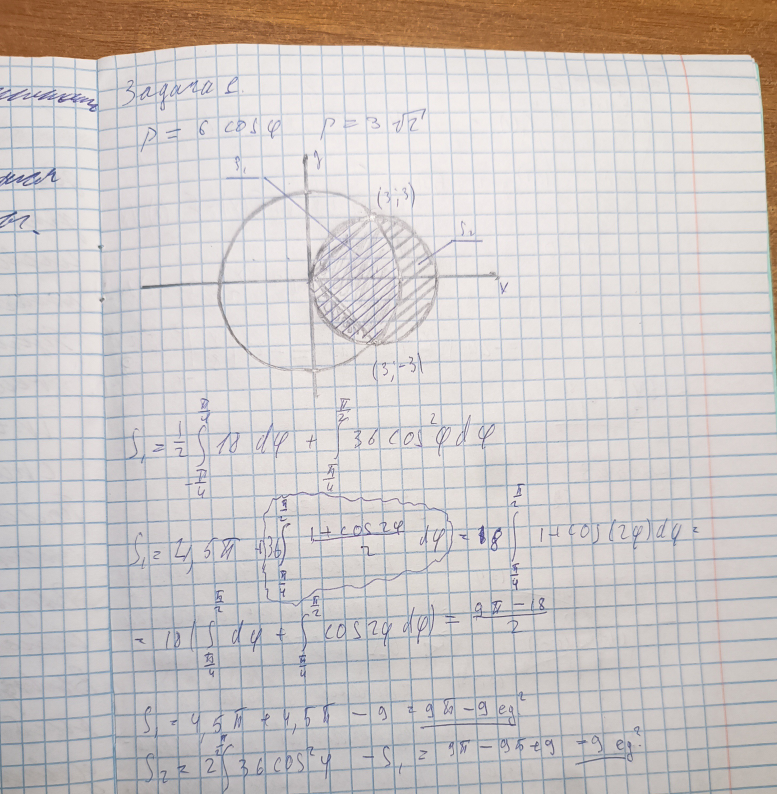 Задача 1.
ρ = 6 cos φ ρ = 3√2
y
S₁
(3;3)
S₂
x
(3;-3)
S₁ = 1/2 ∫_{-π/4}^{π/4} 18 dφ + ∫_{π/4}^{π/2} 36 cos²φ dφ
S₁ = 4,5π + 36 ∫_{π/4}^{π/2} (1+cos 2φ)/2 dφ = 18 ∫_{π/4}^{π/2} 1+cos(2φ)dφ =
= 18 (∫_{π/4}^{π/2} dφ + ∫_{π/4}^{π/2} cos 2φ dφ) = (9π-18)/2
S₁ = 4,5π + 4,5π - 9 = 9π - 9 ед²
S₂ = 2∫^{π/2} 36 cos²φ - S₁ = 9π - 9π+9 = 9 ед².